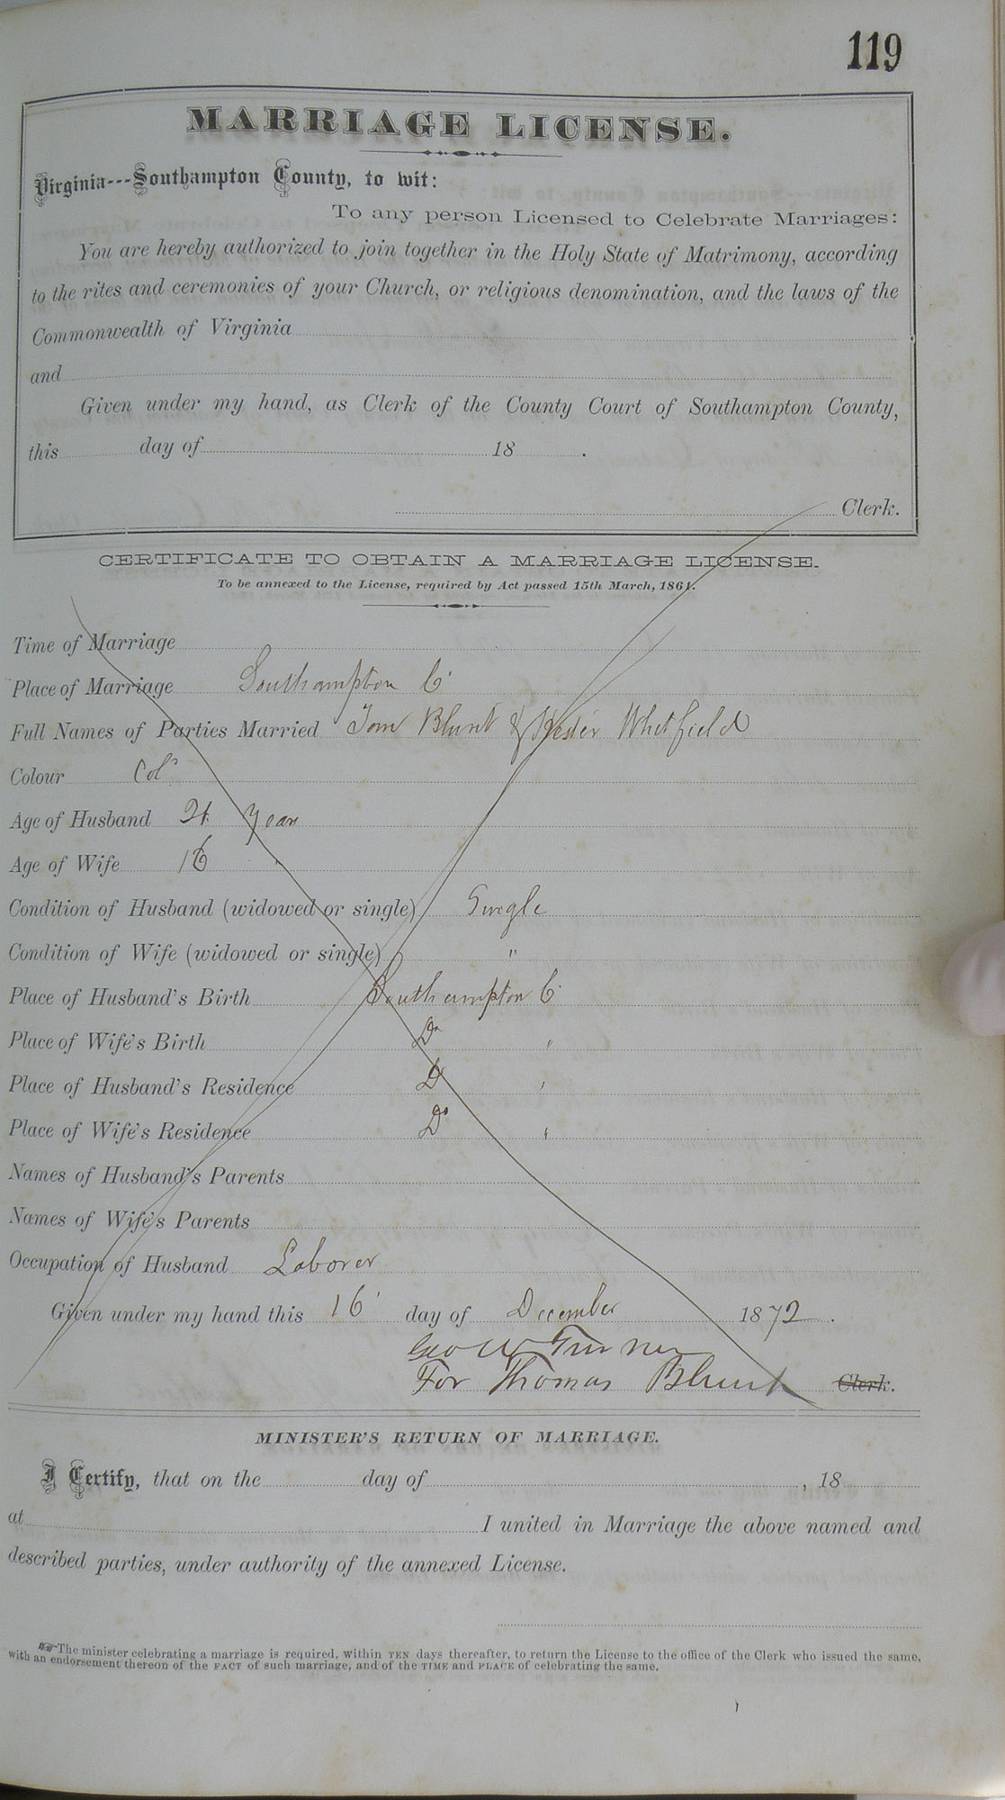 119
MARRIAGE LICENSE.
Virginia---Southampton County, to wit:
To any person Licensed to Celebrate Marriages:
You are hereby authorized to join together in the Holy State of Matrimony, according
to the rites and ceremonies of your Church, or religious denomination, and the laws of the
Commonwealth of Virginia
and
Given under my hand, as Clerk of the County Court of Southampton County,
this day of 18 .
Clerk.
CERTIFICATE TO OBTAIN A MARRIAGE LICENSE.
To be annexed to the License, required by Act passed 15th March, 1861.
Time of Marriage
Place of Marriage Southampton C
Full Names of Parties Married Tom Blunt & Hester Whitfield
Colour Col
Age of Husband 21 years
Age of Wife 16 "
Condition of Husband (widowed or single) Single
Condition of Wife (widowed or single) "
Place of Husband's Birth Southampton C
Place of Wife's Birth Do "
Place of Husband's Residence Do "
Place of Wife's Residence Do "
Names of Husband's Parents
Names of Wife's Parents
Occupation of Husband Laborer
Given under my hand this 16 day of December 1872.
Geo W Turner
For Thomas Blunt Clerk.
MINISTER'S RETURN OF MARRIAGE.
I Certify, that on the day of , 18
at I united in Marriage the above named and
described parties, under authority of the annexed License.
The minister celebrating a marriage is required, within TEN days thereafter, to return the License to the office of the Clerk who issued the same,
with an endorsement thereon of the FACT of such marriage, and of the TIME and PLACE of celebrating the same.